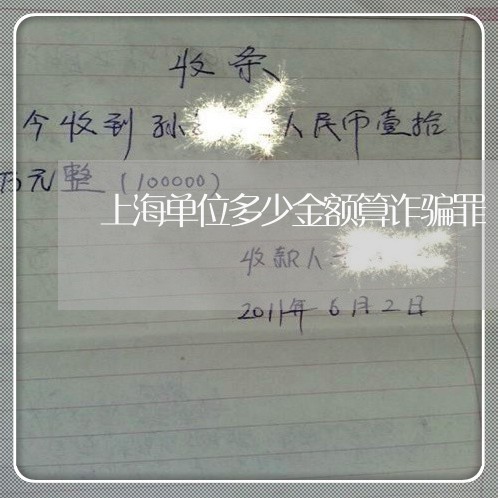 收条
今收到孙 人民币壹拾
万元整(100000)
上海单位多少金额算诈骗罪
收款人
2011年6月2日